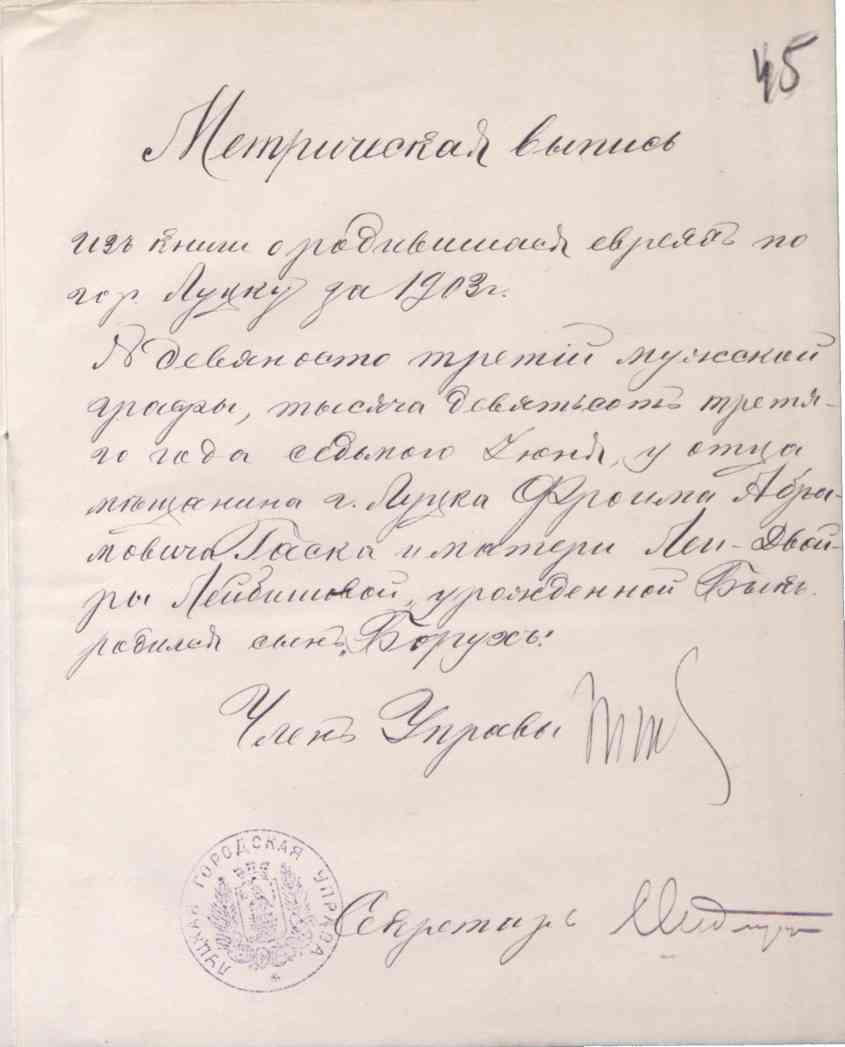 45
Метрическая выпись
изъ книги о родившихся евреяхъ по
гор. Луцку за 1903 г.
В девяносто третій мужской
графы, тысяча девятьсотъ третя-
го года седьмого Іюня, у отца
мѣщанина г. Луцка Фроима Абра-
мовича Гаска и матери Леи-Двой-
ры Лейбишовой, урожденной Быкъ
родился сынъ "Борухъ".
Членъ Управы
ЛУЦКАЯ ГОРОДСКАЯ УПРАВА
Секретарь